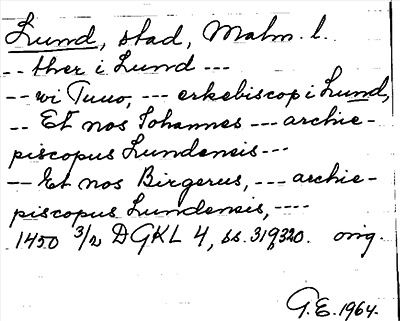 Lund, stad, Malm. l.
-- ther i Lund ---
-- wi Tuuo, --- erkebiscop i Lund,
-- Et nos Iohannes --- archie-
piscopus Lundensis ---
-- Et nos Birgerus, --- archie-
piscopus Lundensis, ----
1450 3/2 DGKL 4, ss. 319,320. orig.
G.E. 1964.